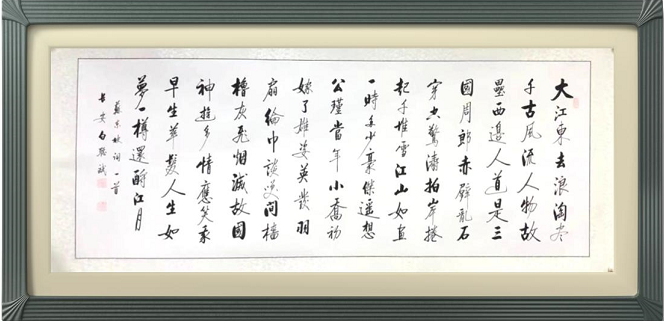 大江東去浪淘尽
千古風流人物故
壘西邊人道是三
國周郎赤壁乱石
穿空驚濤拍岸捲
起千堆雪江山如畫
一時多少豪傑遥想
公瑾當年小喬初
嫁了雄姿英發羽
扇綸巾談笑間檣
櫓灰飛烟滅故國
神遊多情應笑我
早生華髮人生如
夢一樽還酹江月
蘇東坡詞一首
長安白